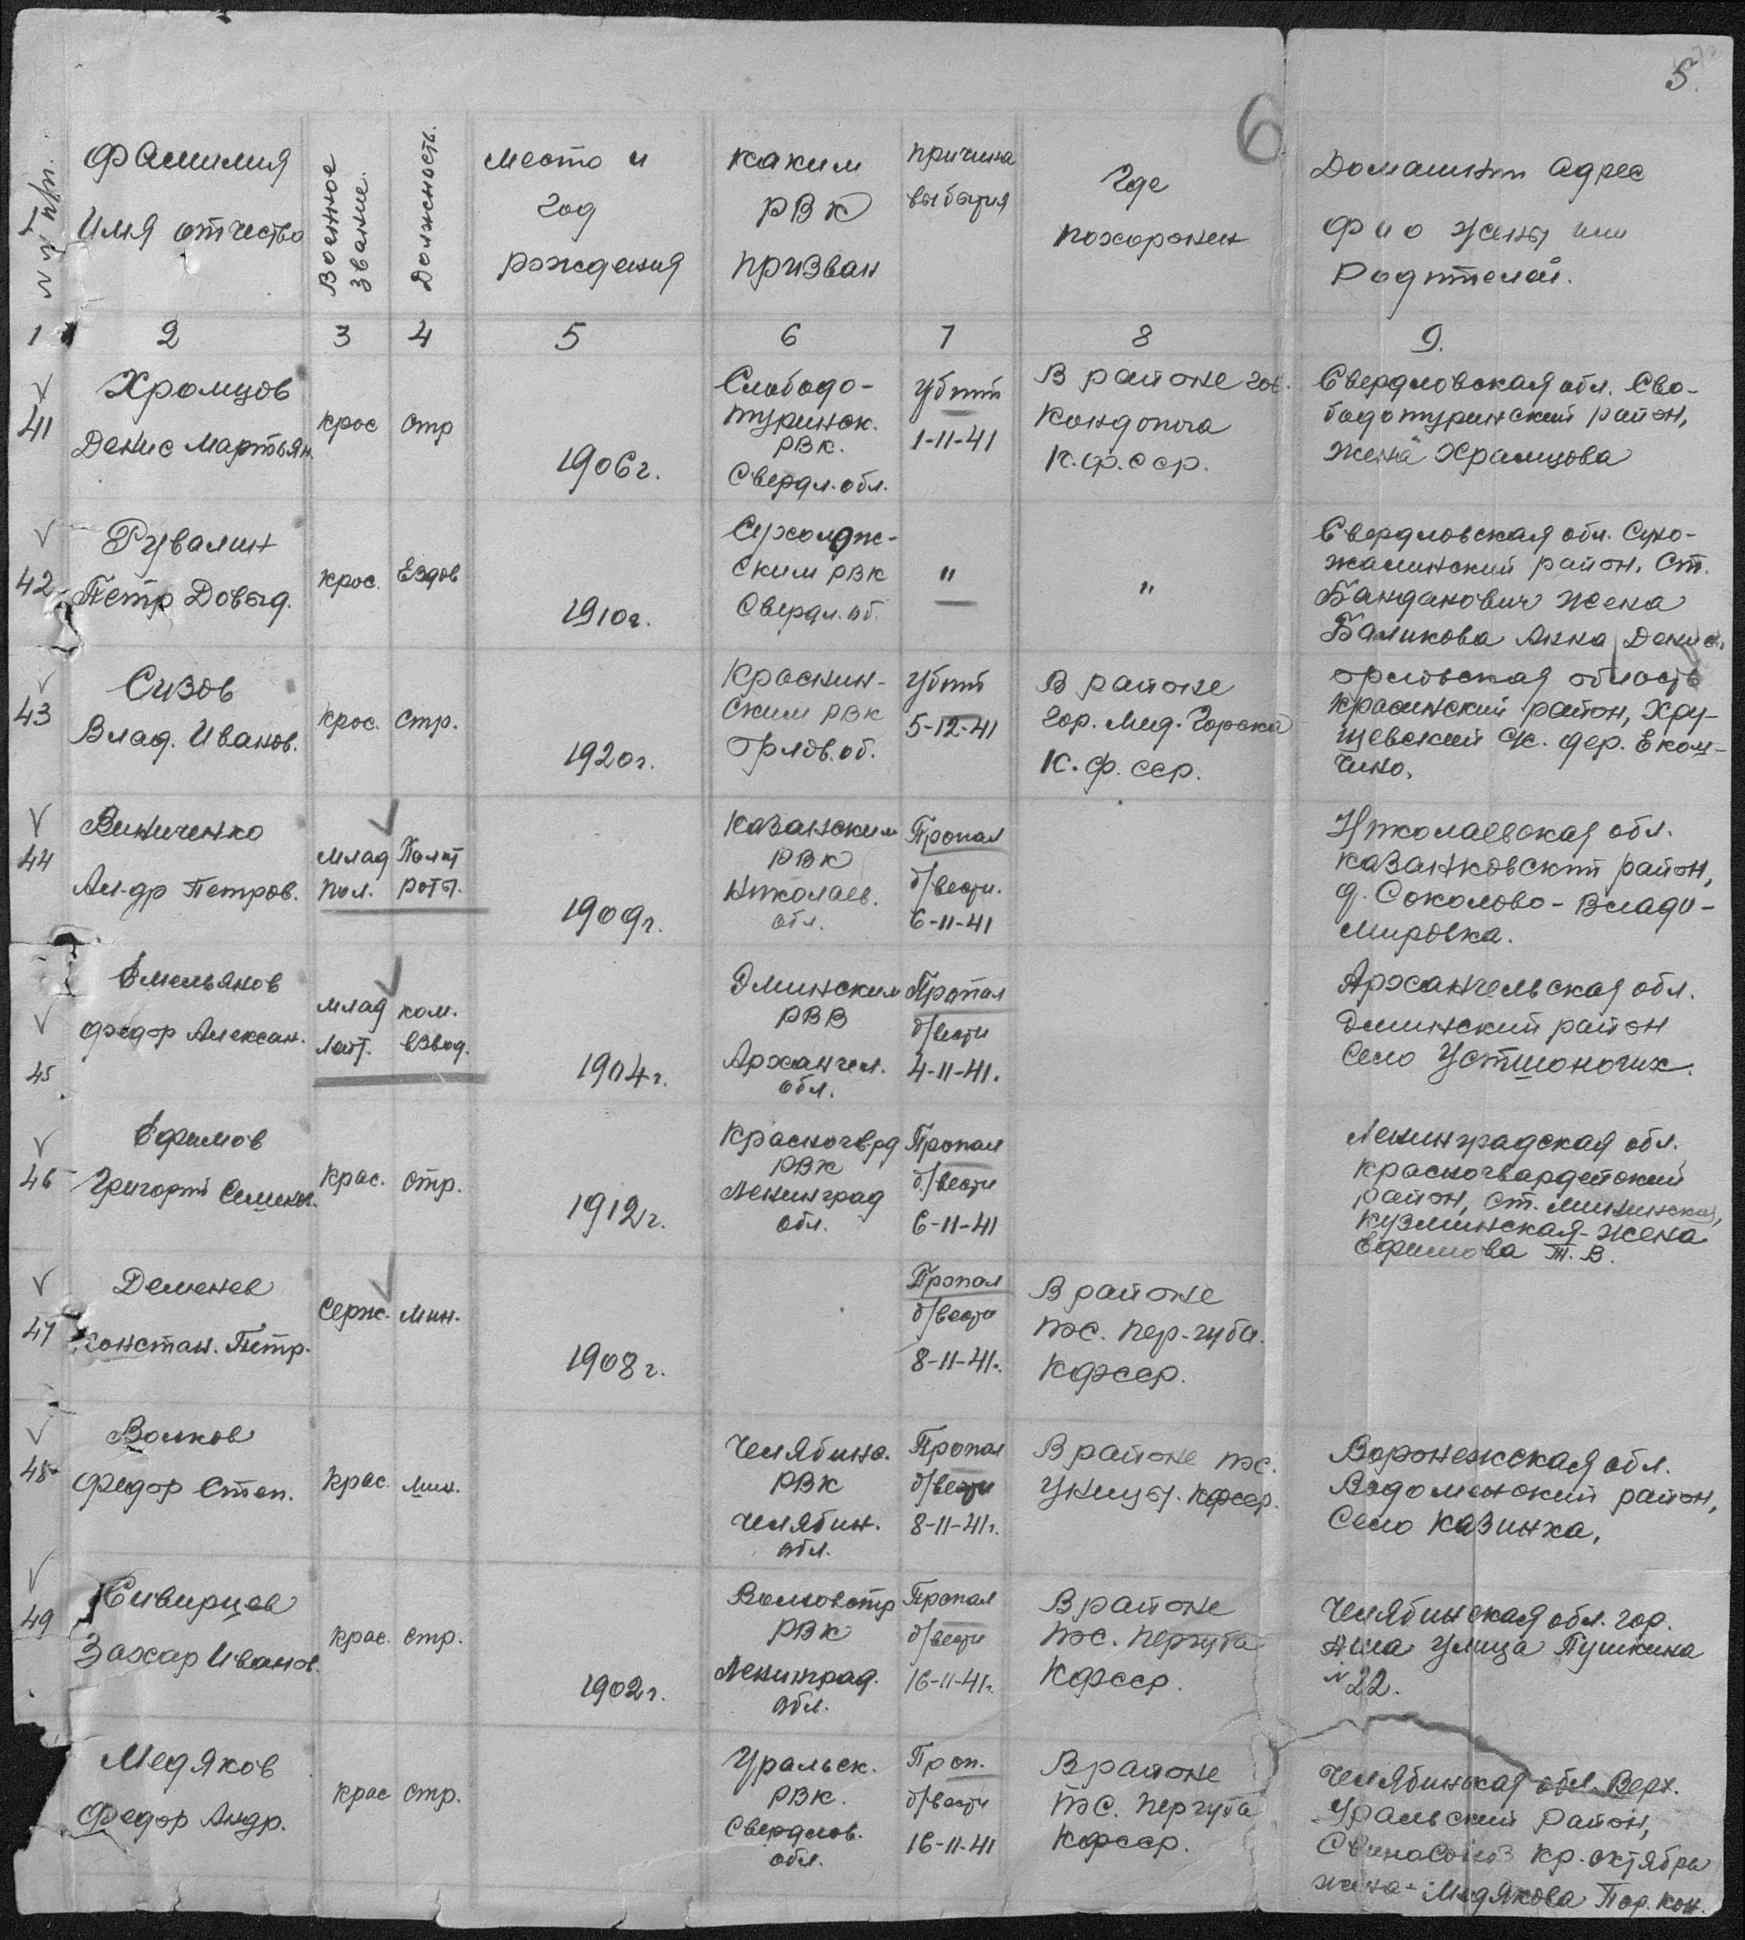 5.
6
N п/п.
Фамилия
Имя отчество
Военное
звание.
Должность.
Место и
год
рождения
каким
РВК
призван
причина
выбытия
Где
похоронен
Домашнии адрес
Ф и о жены или
Родителей.
1 2 3 4 5 6 7 8 9.
41
Хромцов
Денис Мартьян.
крас
стр
1906г.
Слободо-
туринск.
РВК.
Свердл. обл.
убит
1-11-41
В районе гор.
Кондопога
К.Ф.ССР.
Свердловская обл. Сло-
бодотуринский район,
жена Храмцова
42
Рувалин
Петр Довыд.
крас.
Ездов
1910г.
Сухолож-
ским РВК
Свердл. об.
"
"
Свердловская обл. Сухо-
ст.
Банданович жена
Баликова Анна Денис.
43
Сизов
Влад. Иванов.
крас.
стр.
1920г.
Краснин-
ским РВК
Орлов. об.
Убит
5-12-41
В районе
Гор. Мед. Горска
К.Ф.ССР.
Орловская область
красинский район, Хру-
щевский с/с. дер. Еком-
чино.
44
Виниченко
Ал-др Петров.
млад
пол.
Полит
роты.
1909г.
Казанским
РВК
Николаев.
обл.
Пропал
б/вести.
6-11-41
Николаевская обл.
Казанковский район,
д. Соколово-Влади-
мировка.
45
Емельянов
Федор Алексан.
млад
лейт.
ком.
взвод.
1904г.
Эминским
РВВ
Архангел.
обл.
Пропал
б/вести
4-11-41.
Архангельская обл.
район
Село
46
Ефимов
Григорий Семенов.
крас.
стр.
1912г.
Красногврд
РВК
Ленинград
обл.
Пропал
б/вести
6-11-41
Ленинградская обл.
Красногвардейский
район, ст.
Кузминская - жена
Ефимова Т. В.
47
Деменев
Констан. Петр.
Серж.
мин.
1908г.
Пропал
б/вести
8-11-41.
В районе
пос. Пер-губа.
КФССР.
48
Волков
Федор Степ.
крас.
мин.
Челябинс.
РВК
Челябин.
обл.
Пропал
б/вести
8-11-41г.
В районе пос.
Уницы. КФССР.
Воронежская обл.
район,
Село Казинка,
49
Сивирцев
Захар Иванов.
крас.
стр.
1902г.
Волховстр
РВК
Ленинград.
обл.
Пропал
б/вести
16-11-41г.
В районе
пос. Пергуба
КФССР.
Челябинская обл. гор.
Аша улица Пушкина
N 22.
Медяков
Федор Андр.
крас
стр.
Уральск.
РВК.
Свердлов.
обл.
Проп.
б/вести
16-11-41
В районе
пос. Пергуба
КФССР.
Челябинская обл. Верх.
Уральский район,
Кр. октябрь
жена - Медякова